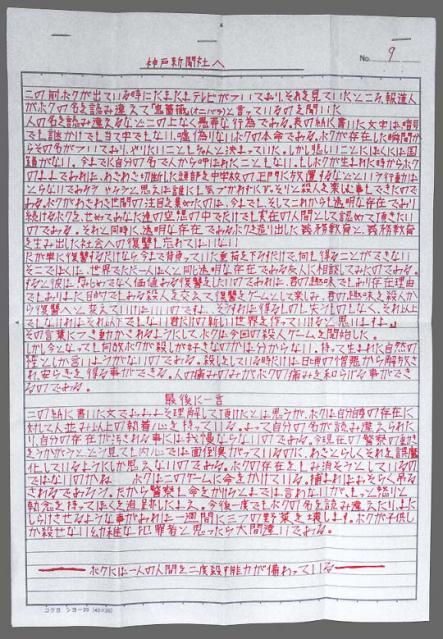 No. 9
神戸新聞社へ
この前ボクが出ている時にたまたまテレビがついており、それを見ていたところ、報道人
がボクの名を読み違えて「鬼薔薇」(オニバラ)と言っているのを聞いた
人の名を読み違えるなどこの上なく愚弄な行為である。表の紙に書いた文字は、暗号
でも謎かけでも当て字でもない、嘘偽りないボクの本命である。ボクが存在した瞬間から
その名がついており、やりたいこともちゃんと決まっていた。しかし悲しいことにぼくには国
籍がない。今までに自分の名で人から呼ばれたこともない。もしボクが生まれた時からボク
のままであれば、わざわざ切断した頭部を中学校の正門に放置するなどという行動は
とらないであろう やろうと思えば誰にも気づかれずにひっそりと殺人を楽しむ事もできたので
ある。ボクがわざわざ世間の注目を集めたのは、今までも、そしてこれからも透明な存在であり
続けるボクを、せめてあなた達の空想の中でだけでも実在の人間として認めて頂きたい
のである。それと同時に、透明な存在であるボクを造り出した義務教育と、義務教育
を生み出した社会への復讐も忘れてはいない
だが単に復讐するだけなら、今まで背負っていた重荷を下ろすだけで、何も得ることができない
そこでぼくは、世界でただ一人ぼくと同じ透明な存在である友人に相談してみたのである。
すると彼は、「みじめでなく価値ある復讐をしたいのであれば、君の趣味でもあり存在理由
でもありまた目的でもある殺人を交えて復讐をゲームとして楽しみ、君の趣味を殺人から
復讐へと変えていけばいいのですよ、そうすれば得るものも失うものもなく、それ以上
でもなければそれ以下でもない君だけの新しい世界を作っていけると思いますよ。」
その言葉につき動かされるようにしてボクは今回の殺人ゲームを開始した。
しかし今となっても何故ボクが殺しが好きなのかは分からない。持って生まれた自然の
性としか言いようがないのである。殺しをしている時だけは日頃の憎悪から解放さ
れ、安らぎを得る事ができる。人の痛みのみが、ボクの痛みを和らげる事ができ
るのである。
最後に一言
この紙に書いた文でおおよそ理解して頂けたとは思うが、ボクは自分自身の存在に
対して人並み以上の執着心を持っている。よって自分の名が読み違えられた
り、自分の存在が汚される事には我慢ならないのである。今現在の警察の動き
をうかがうと、どう見ても内心では面倒臭がっているのに、わざとらしくそれを誤魔
化しているようにしか思えないのである。ボクの存在をもみ消そうとしているの
ではないのかね ボクはこのゲームに命をかけている。捕まればおそらく吊る
されるであろう。だから警察も命をかけろとまでは言わないが、もっと怒りと
執念を持ってぼくを追跡したまえ。今後一度でもボクの名を読み違えたり、また
しらけさせるような事があれば一週間に三つの野菜を壊します。ボクが子供し
か殺せない幼稚な犯罪者と思ったら大間違いである。
ボクには一人の人間を二度殺す能力が備わっている
コクヨ